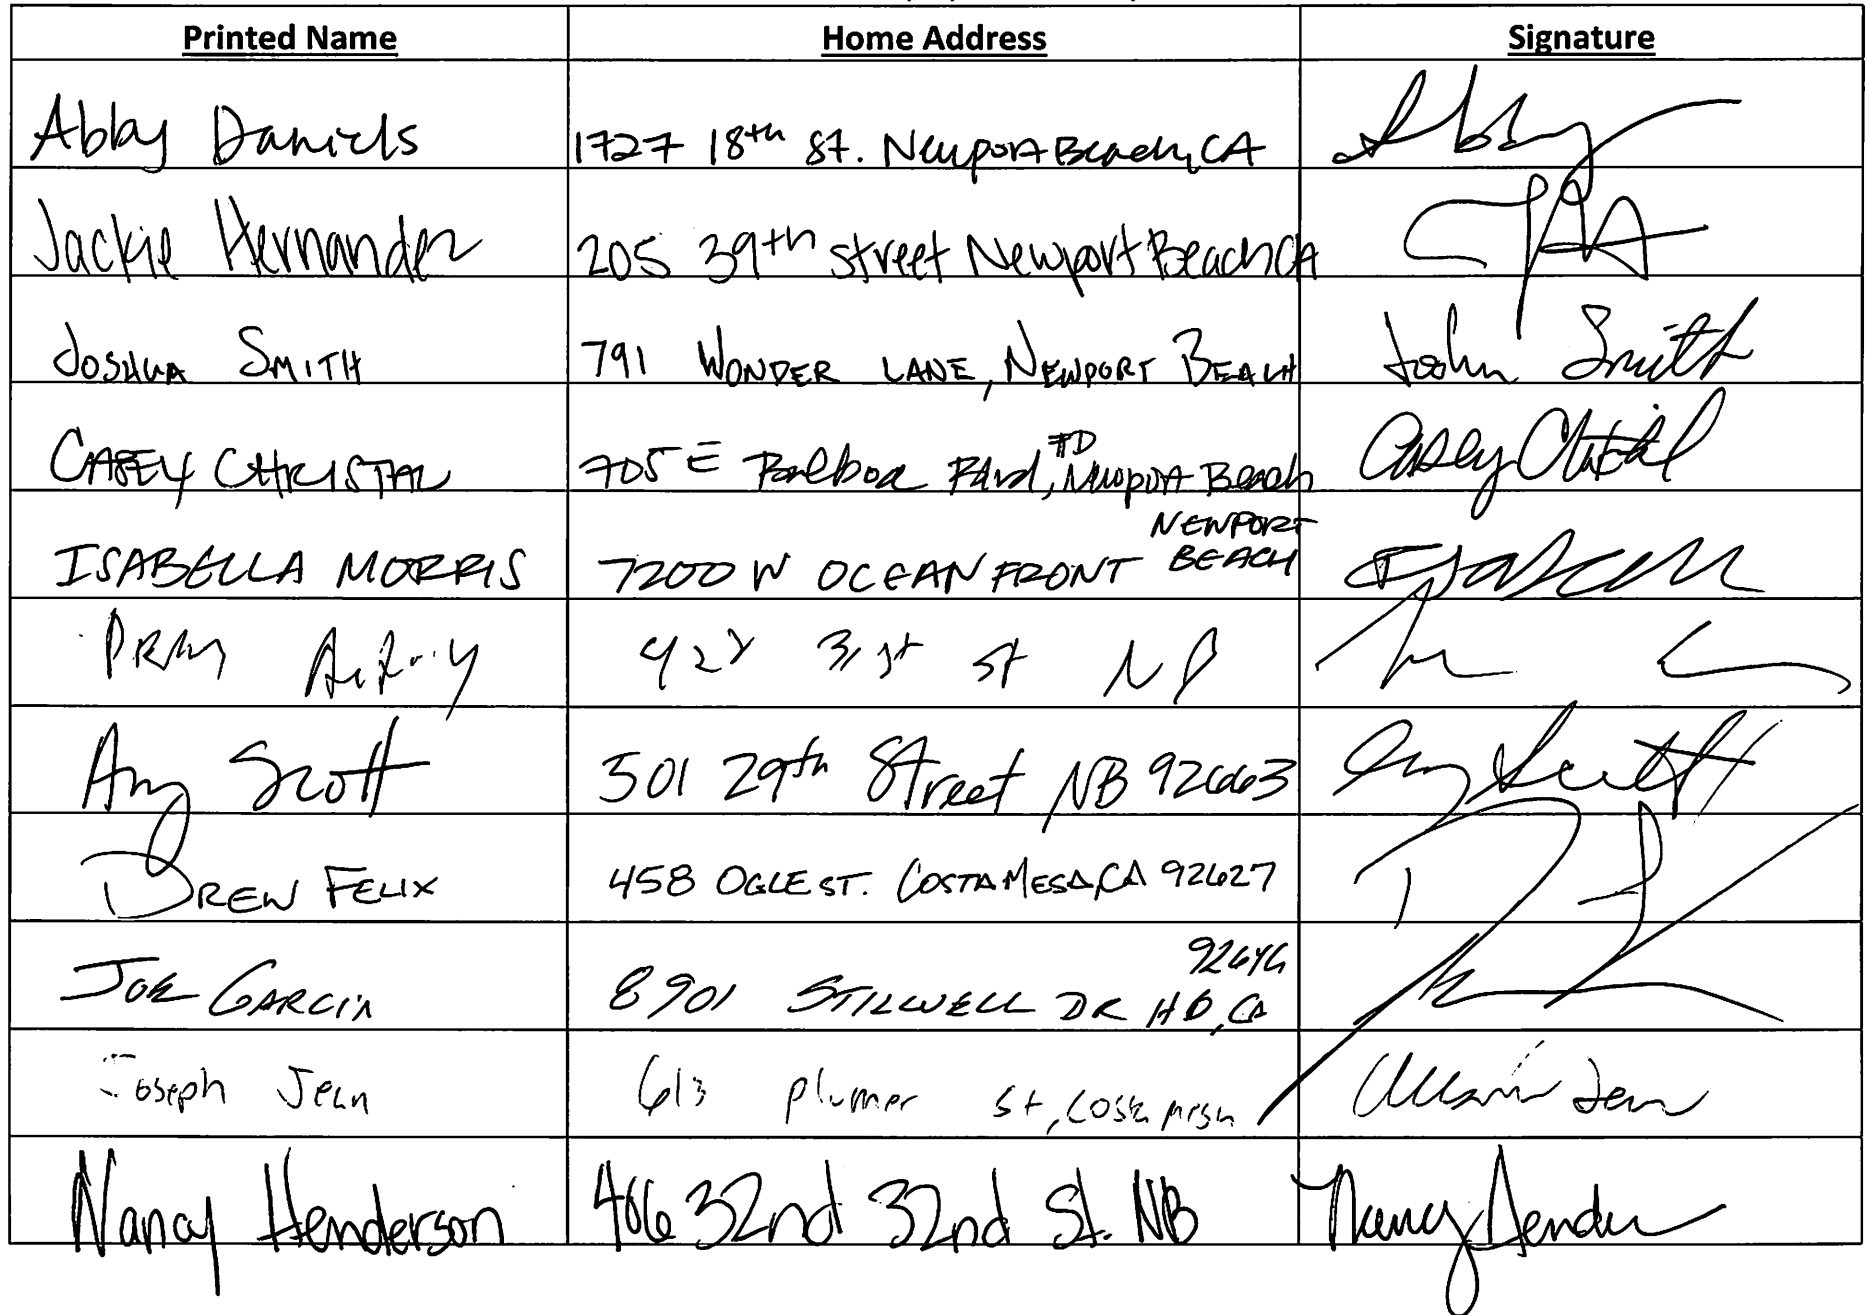 Printed Name Home Address Signature
Abby Daniels 1727 18th St. Newport Beach, CA Abby
Jackie Hernandez 205 39th street Newport Beach CA
JOSHUA SMITH 791 WONDER LANE, NEWPORT BEACH Smith
CASEY CHRISTAL 705 E Balboa Blvd, #D Newport Beach Casey
ISABELLA MORRIS 7200 W OCEAN FRONT NEWPORT BEACH
31st st
Amy Scott 501 29th Street NB 92663 Amy Scott
DREW FELIX 458 OGLE ST. COSTA MESA, CA 92627
JOE GARCIA 8901 STILWELL DR HB, CA 92646
Joseph Jean 613 plumer st, Costa mesa Jean
Nancy Henderson 406 32nd 32nd St. NB Nancy